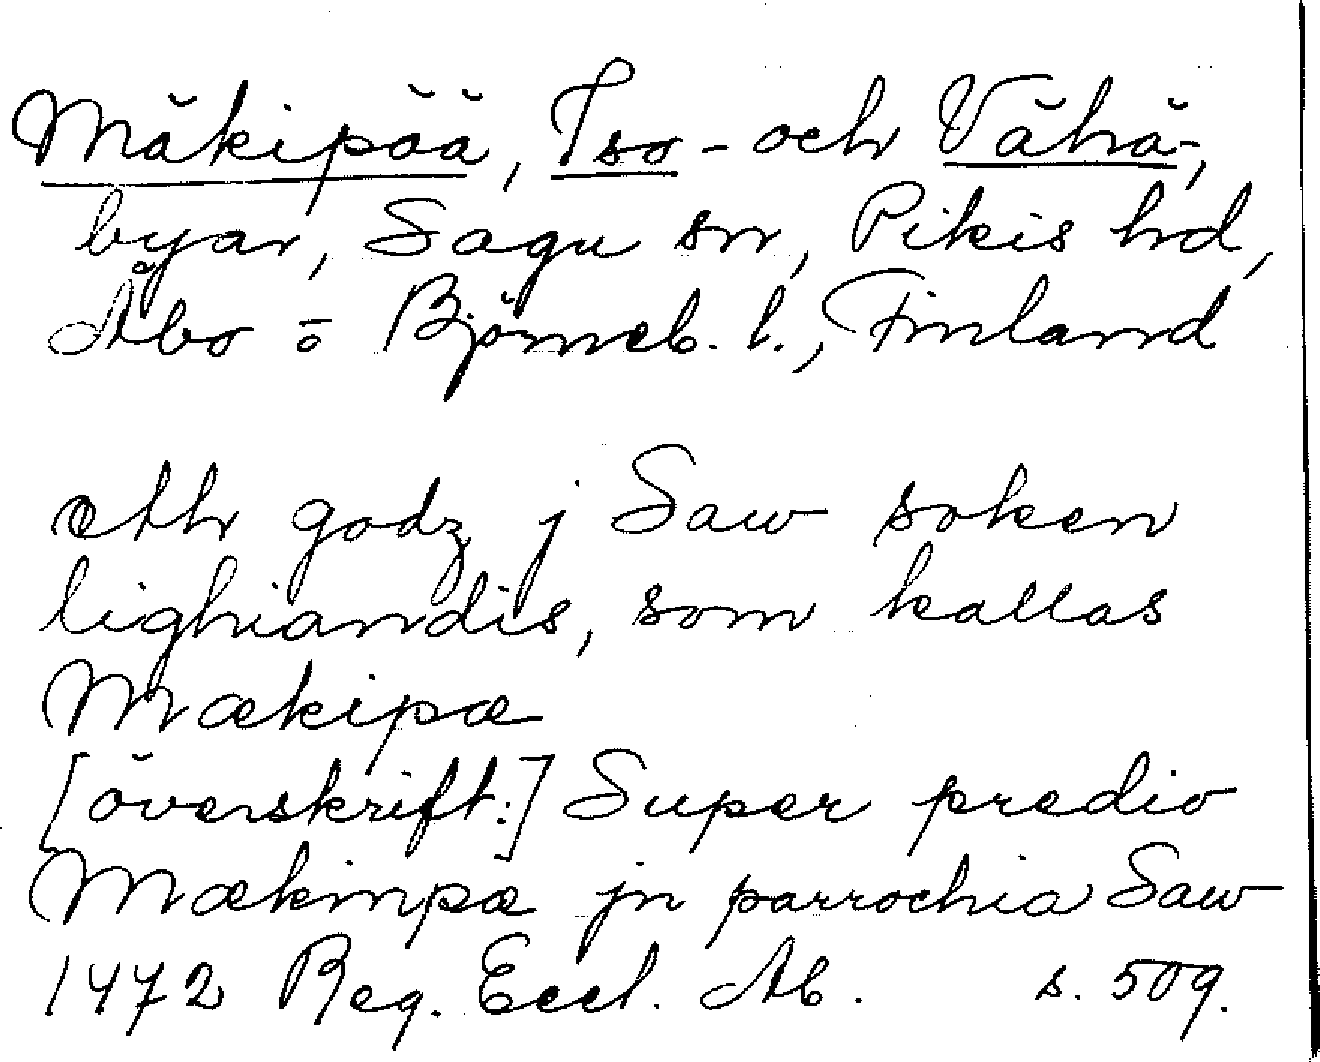 Mäkipää, Iso- och Vähä-,
byar, Sagu sn, Pikis hd,
Åbo o Björneb. l., Finland
etth godz j Saw soken
lighiandis, som kallas
Mækipæ
[överskrift:] Super predio
Mækinpæ jn parrochia Saw
1472 Reg. Eccl. Ab. s. 509.